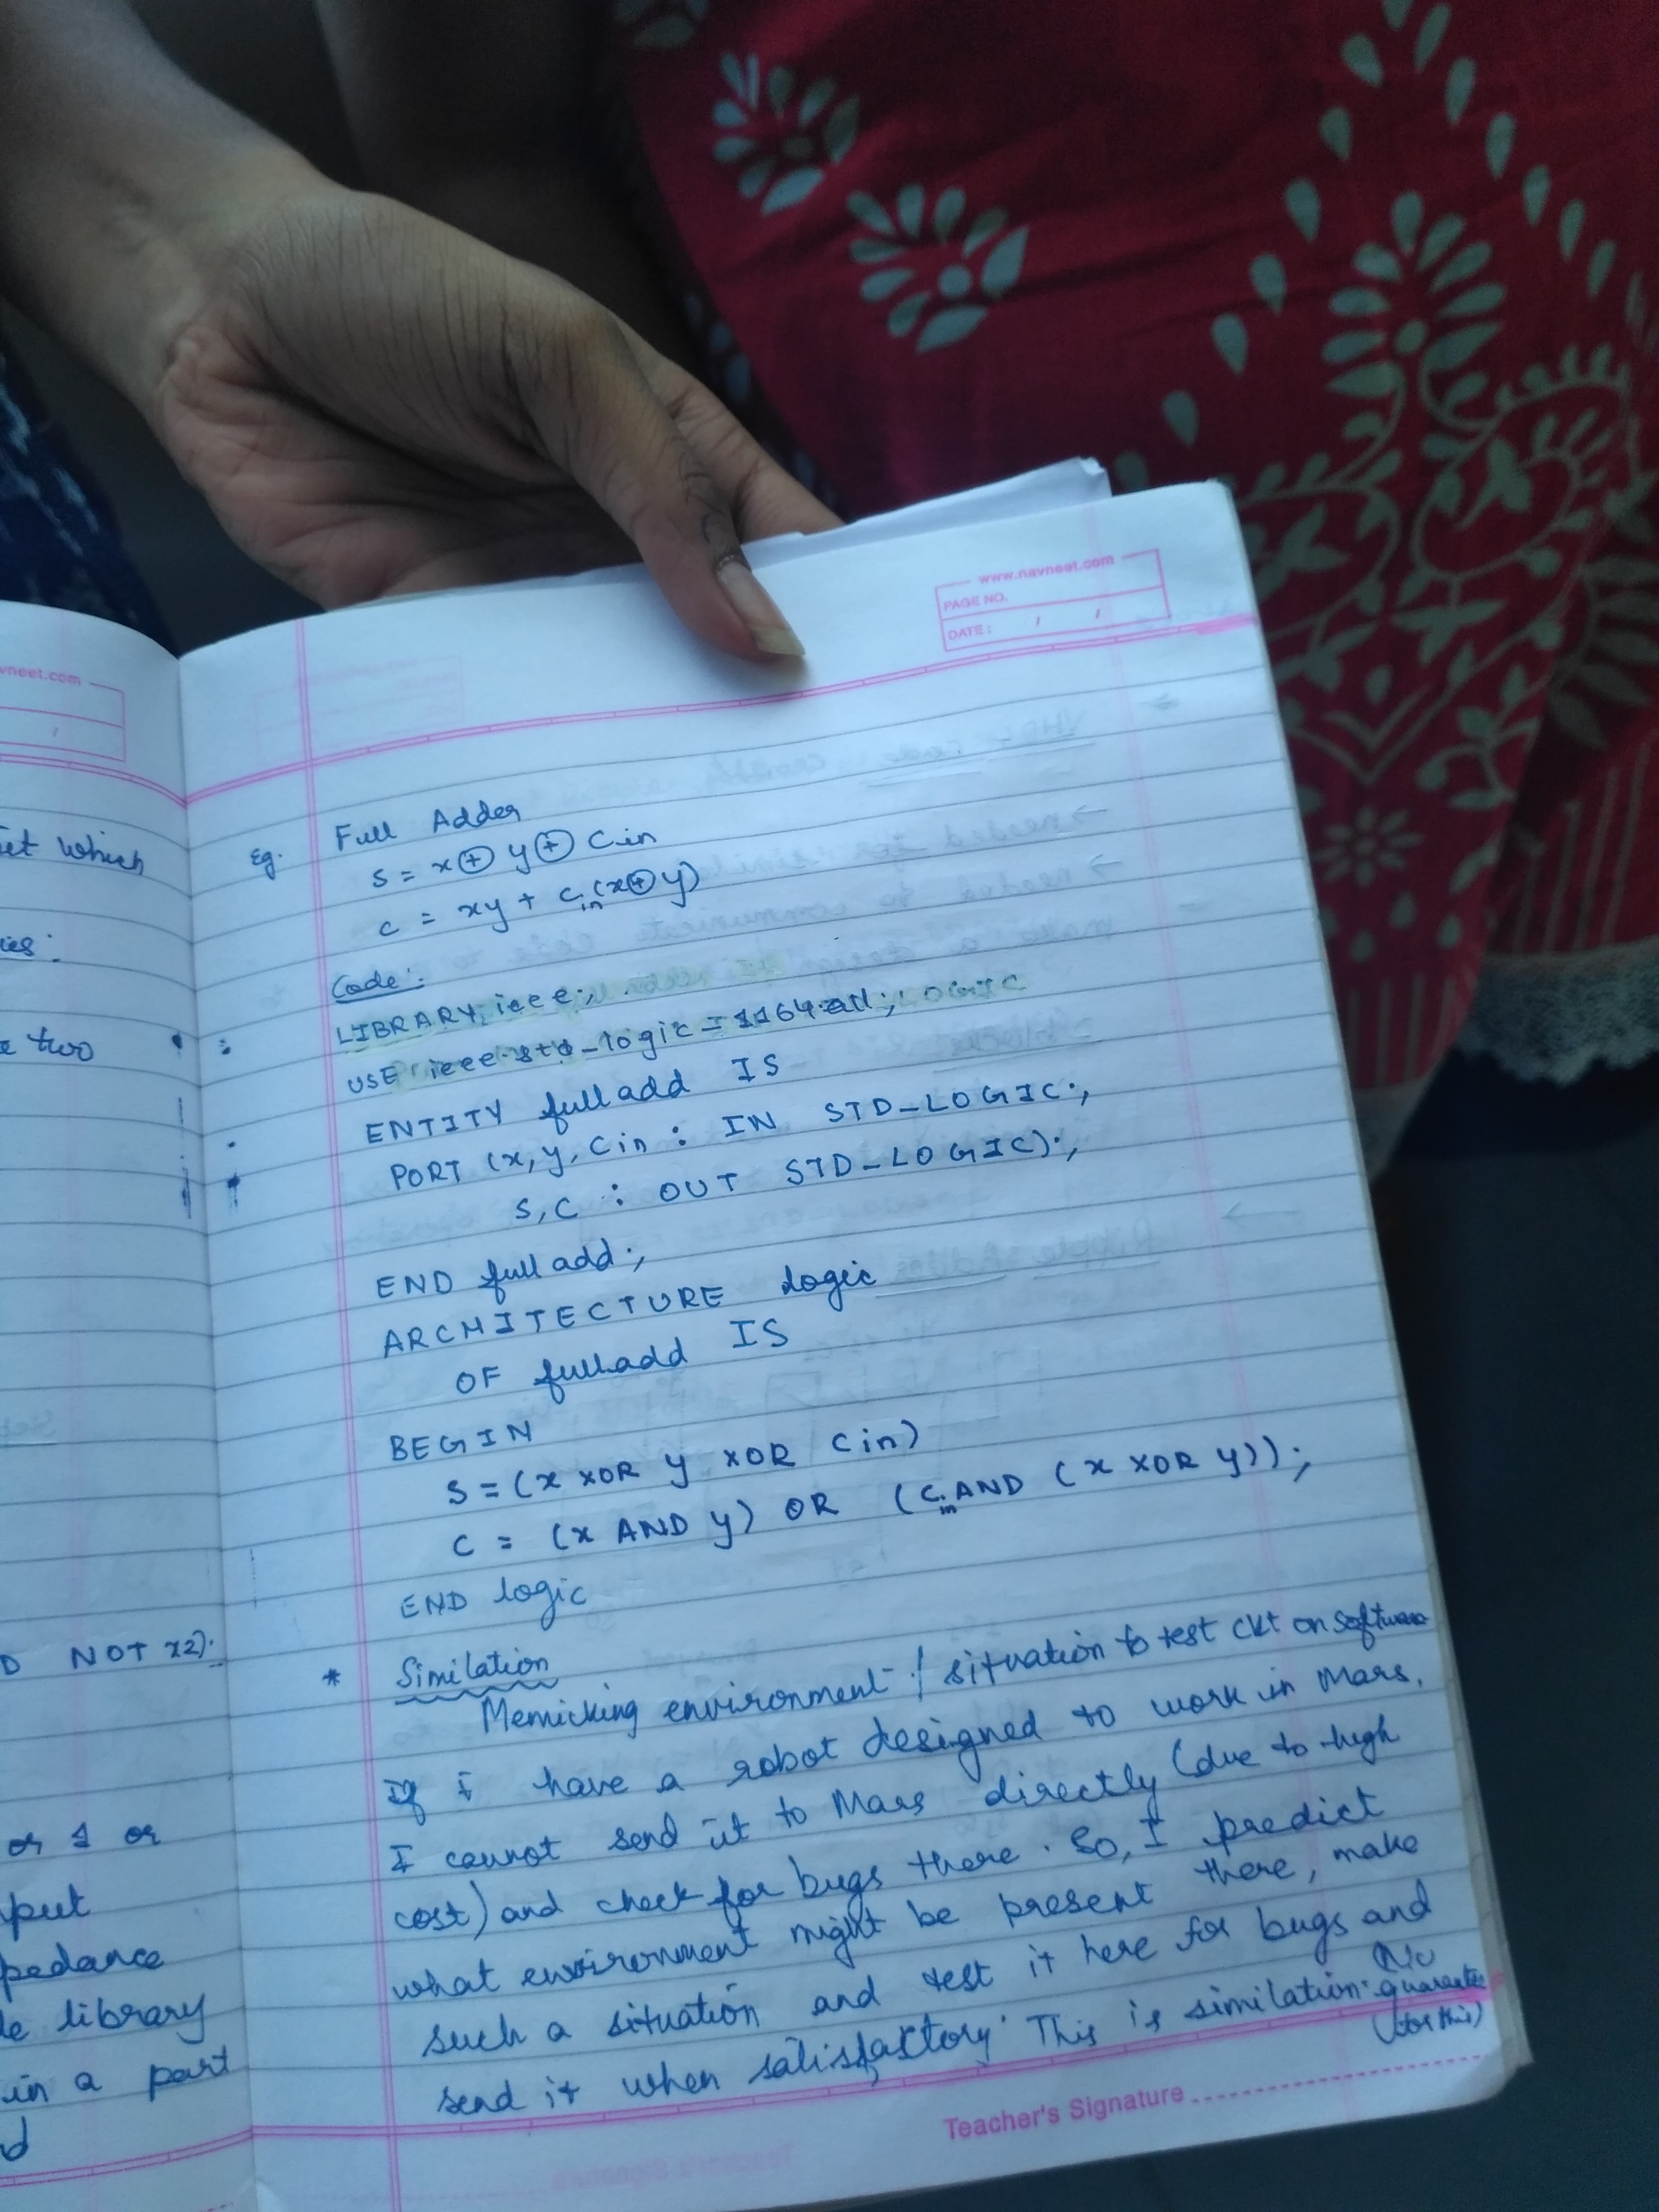 vneet.com
et which
ies:
e two
D NOT x2);
or 1 or
put
pedance
le library
in a part
d
www.navneet.com
PAGE NO.
DATE: / /
Eg. Full Adder
s = x ⊕ y ⊕ Cin
c = xy + Cin(x⊕y)
Code:
LIBRARY ieee;
USE ieee.std_logic_1164.all;
ENTITY fulladd IS
PORT (x, y, Cin : IN STD_LOGIC;
S, C : OUT STD_LOGIC);
END fulladd;
ARCHITECTURE logic
OF fulladd IS
BEGIN
S = (x XOR y XOR Cin)
C = (x AND y) OR (Cin AND (x XOR y));
END logic
* Similation
Memicking environment / situation to test ckt on software
If I have a robot designed to work in Mars,
I cannot send it to Mars directly (due to high
cost) and check for bugs there. So, I predict
what environment might be present there, make
such a situation and test it here for bugs and
send it when satisfactory. This is similation. (No guarantee (for this)
Teacher's Signature